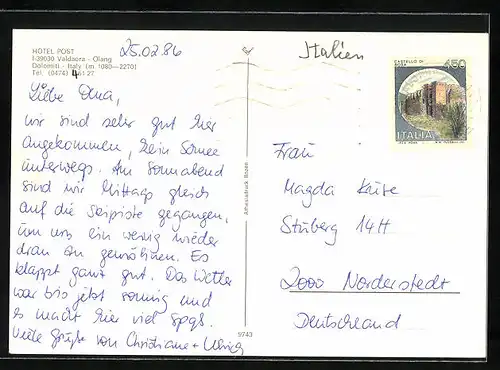 HOTEL POST
I-39030 Valdaora - Olang
Dolomiti - Italy (m 1080—2270)
Tel. (0474) 46127
25.02.86
Italien
CASTELLO DI
450
ITALIA
Liebe Oma,
wir sind sehr gut hier
angekommen, kein Schnee
unterwegs. Am Sonnabend
sind wir Mittags gleich
auf die Skipiste gegangen,
um uns ein wenig wieder
dran zu gewöhnen. Es
klappt ganz gut. Das Wetter
war bis jetzt sonnig und
es macht hier viel Spaß.
Viele Grüße von Christiane + Ulrich
Athesiadruck Bozen
9743
Frau
Magda Kruse
Stuberg 14H
2000 Norderstedt
Deutschland